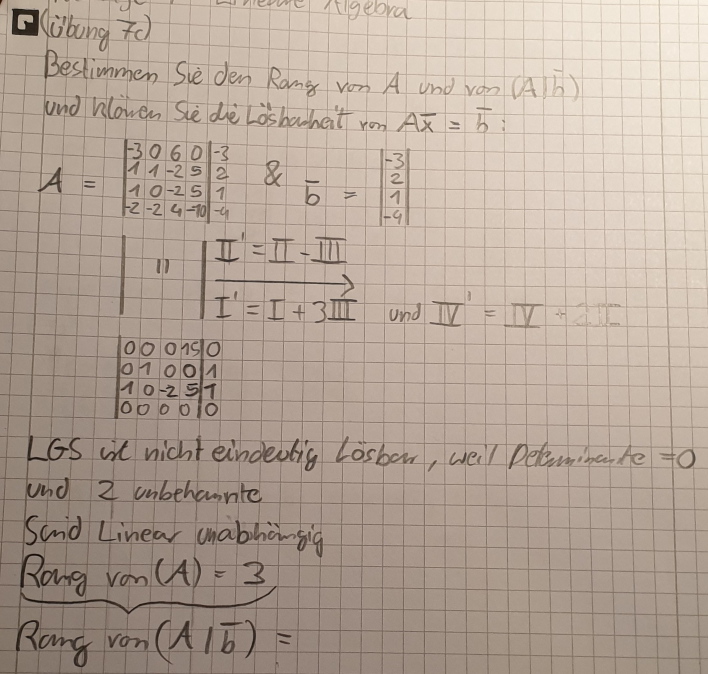 Lineare Algebra
(Übung 7c)
Bestimmen Sie den Rang von A und von (A|b̄)
und klären Sie die Lösbarkeit von Ax̄ = b̄ :
-3 0 6 0 | -3
1 1 -2 5 | 2
1 0 -2 5 | 1
-2 -2 4 -10 | -4
A = & b̄ =
-3
2
1
-4
" II' = II - III
I' = I + 3III und IV' = IV +
0 0 0 15 | 0
0 1 0 0 | 1
1 0 -2 5 | 1
0 0 0 0 | 0
LGS ist nicht eindeutig Lösbar, weil Determinante = 0
und 2 unbekannte
Sind Linear unabhängig
Rang von (A) = 3
Rang von (A|b̄) =